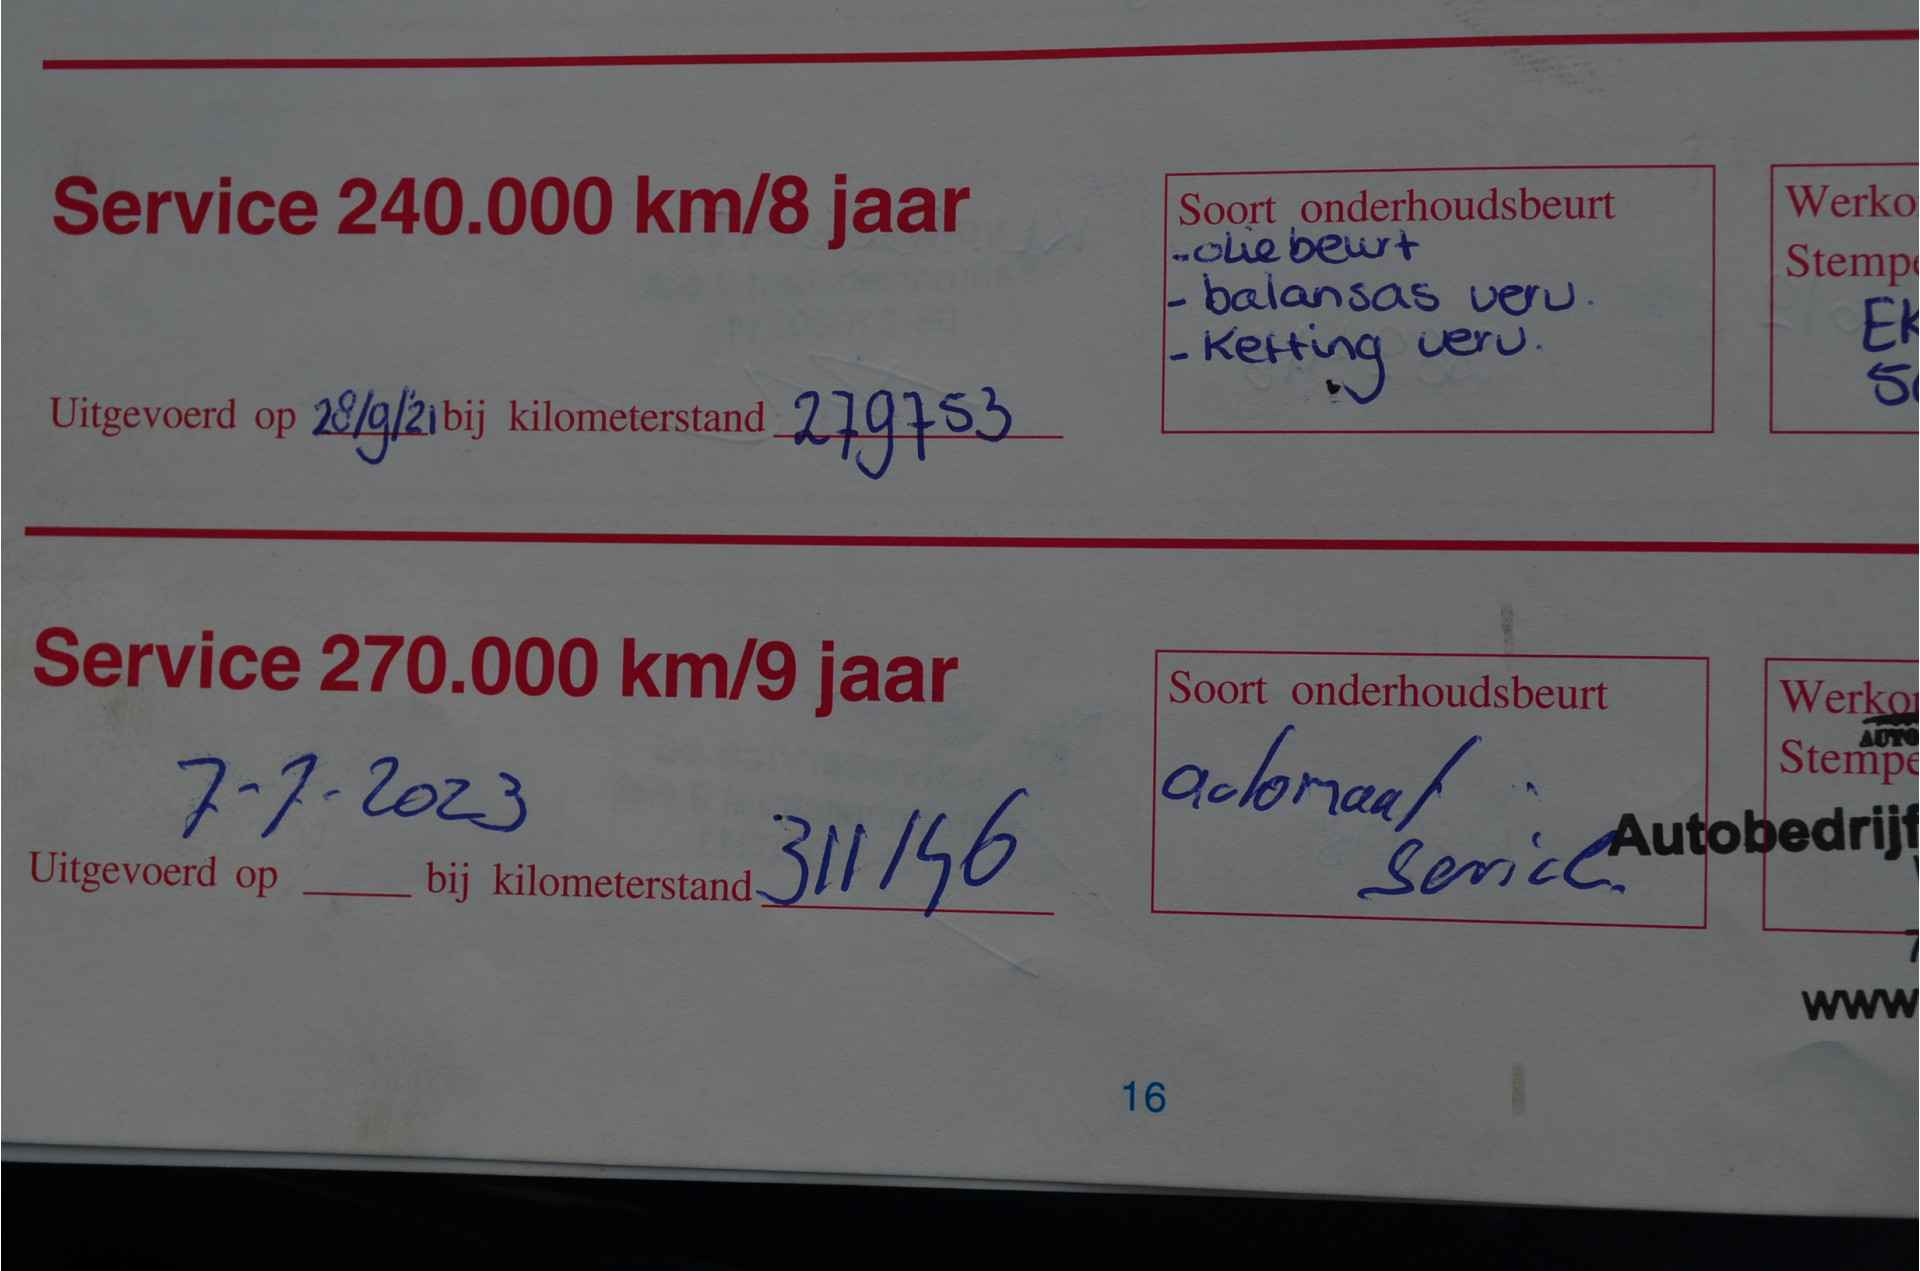 Service 240.000 km/8 jaar
Soort onderhoudsbeurt
- oliebeurt
- balansas verv.
- Ketting verv.
Werko
Stempe
EK
Uitgevoerd op 28/9/21 bij kilometerstand 279753
Service 270.000 km/9 jaar
Soort onderhoudsbeurt
automaat
service
Werkor
AUTO
Stempe
Autobedrijf
7-7-2023
Uitgevoerd op ____ bij kilometerstand 311146
www
16